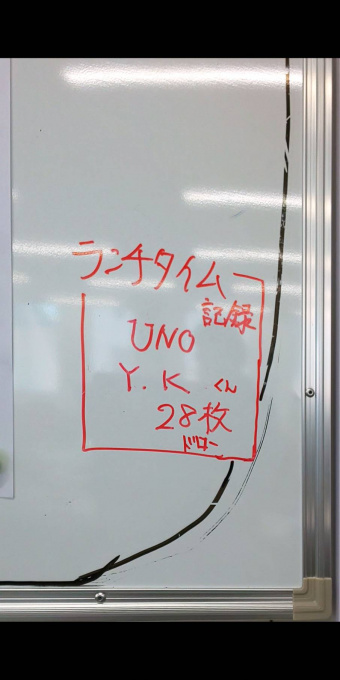 ランチタイム
記録
UNO
Y.K くん
28枚
ドロー